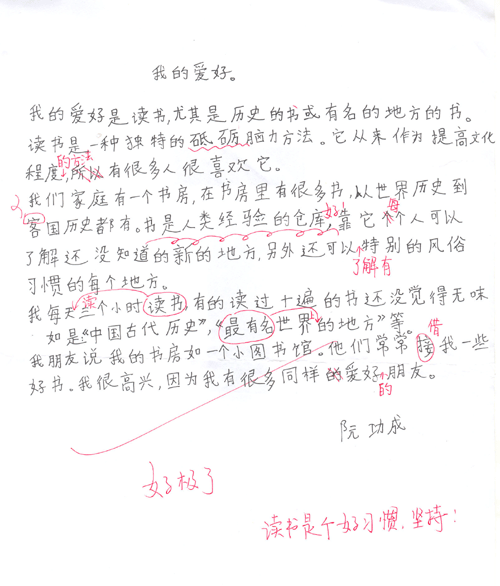 我的爱好。
我的爱好是读书,尤其是历史的书或有名的地方的书。
读书是一种独特的砥砺脑力方法。它从来作为提高文化
的方法
程度,所以有很多人很喜欢它。
我们家庭有一个书房,在书房里有很多书,从世界历史到
客国历史都有。书是人类经验的仓库,靠它个人可以
了解还没知道的新的地方,另外还可以特别的风俗
了解有
习惯的每个地方。
我每天三个小时读书,有的读过十遍的书还没觉得无味
如是“中国古代历史”,“最有名世界的地方”等。
借
我朋友说我的书房如一个小图书馆。他们常常接我一些
好书。我很高兴,因为我有很多同样的爱好朋友。
的
阮功成
好极了
读书是个好习惯,坚持!